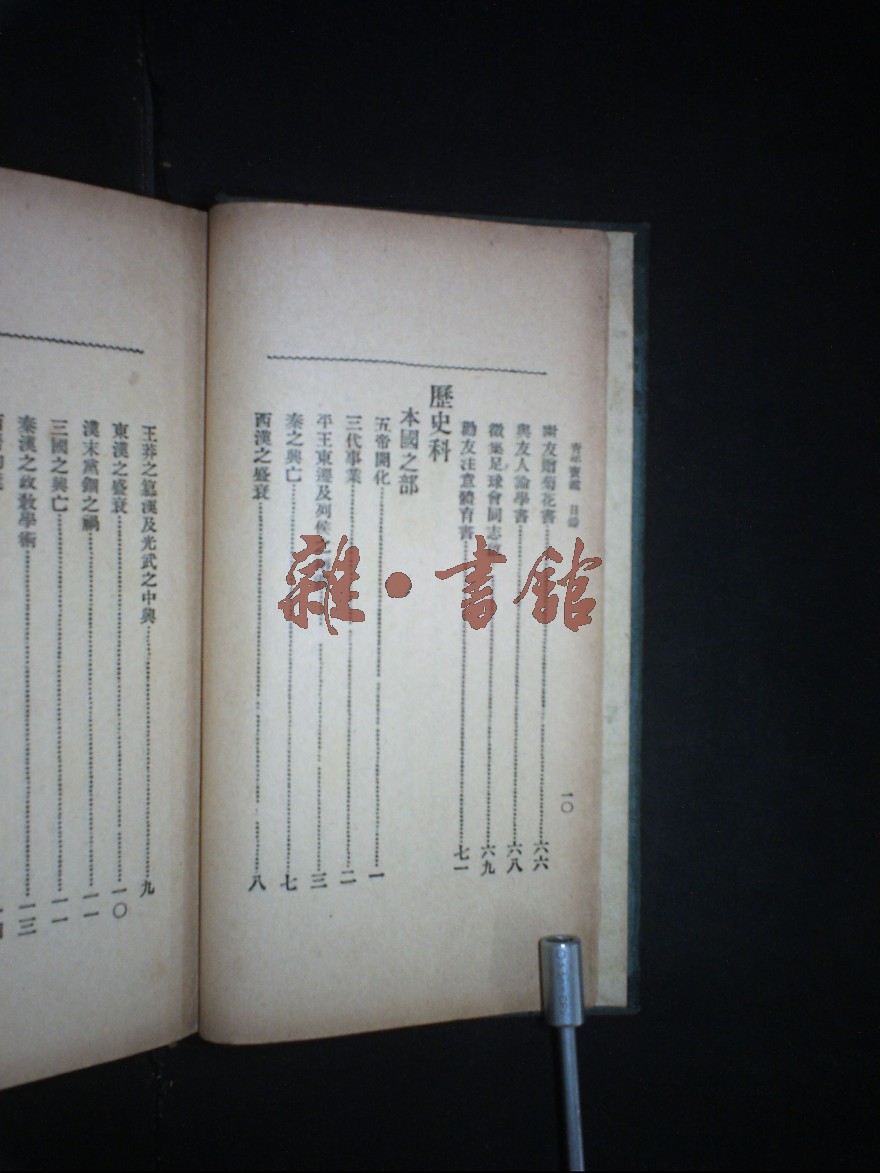 青年寶鑑 目錄
一〇
謝友贈菊花書 六六
與友人論學書 六八
徵集足球會同志 六九
勸友注意體育書 七一
歷史科
本國之部
五帝開化 一
三代事業 二
平王東遷及列侯之 三
秦之興亡 七
西漢之盛衰 八
王莽之篡漢及光武之中興 九
東漢之盛衰 一〇
漢末黨錮之禍 一一
三國之興亡 一一
秦漢之政教學術 一三
雜·書館